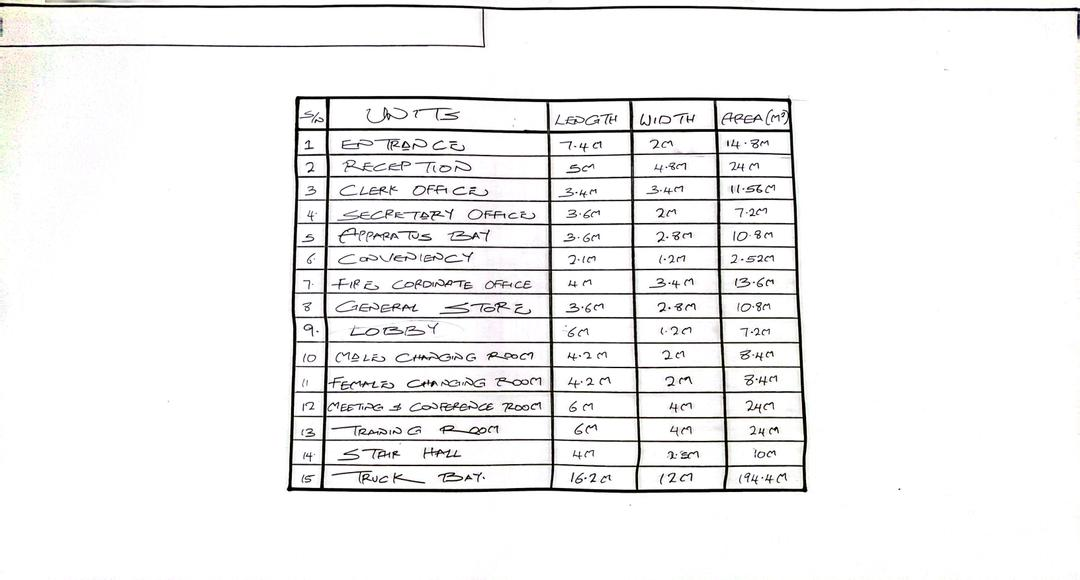 S/N UNITS LENGTH WIDTH AREA (M²)
1 ENTRANCE 7.4M 2M 14.8M
2 RECEPTION 5M 4.8M 24M
3 CLERK OFFICE 3.4M 3.4M 11.56M
4. SECRETARY OFFICE 3.6M 2M 7.2M
5 APPARATUS BAY 3.6M 2.8M 10.8M
6. CONVENIENCY 2.1M 1.2M 2.52M
7. FIRE CORDINATE OFFICE 4M 3.4M 13.6M
8 GENERAL STORE 3.6M 2.8M 10.8M
9. LOBBY 6M 1.2M 7.2M
10 MALE CHANGING ROOM 4.2M 2M 8.4M
11 FEMALE CHANGING ROOM 4.2M 2M 8.4M
12 MEETING & CONFERENCE ROOM 6M 4M 24M
13 TRAINING ROOM 6M 4M 24M
14. STAIR HALL 4M 10M
15 TRUCK BAY. 16.2M 12M 194.4M